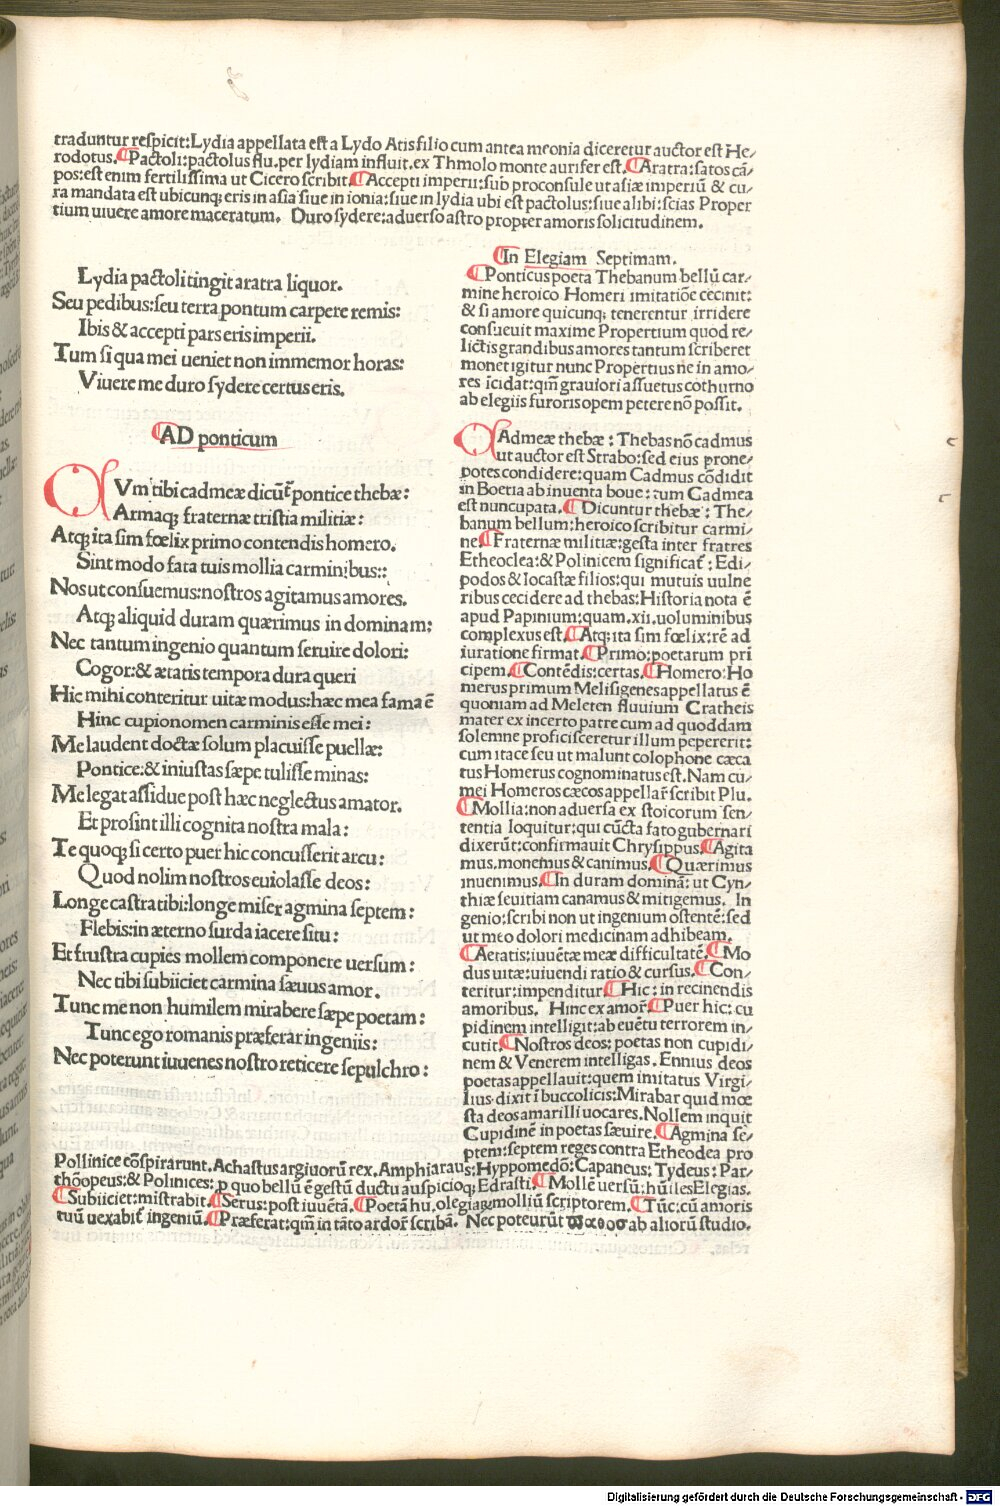 traduntur respicit:Lydia appellata est a Lydo Atis filio cum antea meonia diceretur auctor est He⸗
rodotus.¶Pactoli:pactolus flu.per lydiam influit.ex Thmolo monte aurifer est.¶Aratra:satos cā⸗
pos:est enim fertilissima ut Cicero scribit.¶Accepti imperii:sub proconsule ut asiæ imperiū & cu⸗
ra mandata est ubicunq; eris in asia siue in ionia:siue in lydia ubi est pactolus:siue alibi:scias Proper
tium uiuere amore maceratum. Duro sydere:aduerso astro propter amoris solicitudinem.
Lydia pactoli tingit aratra liquor.
Seu pedibus:seu terra pontum carpere remis:
Ibis & accepti pars eris imperii.
Tum si qua mei ueniet non immemor horas:
Viuere me duro sydere certus eris.
¶AD ponticum
Vm tibi cadmeæ dicūt pontice thebæ:
Armaq; fraternæ tristia militiæ:
Atq; ita sim fœlix primo contendis homero.
Sint modo fata tuis mollia carminibus::
Nos ut consuemus:nostros agitamus amores.
Atq; aliquid duram quærimus in dominam:
Nec tantum ingenio quantum seruire dolori:
Cogor:& ætatis tempora dura queri
Hic mihi conteritur uitæ modus:hæc mea fama ē
Hinc cupio nomen carminis esse mei:
Me laudent doctæ solum placuisse puellæ:
Pontice:& iniustas sæpe tulisse minas:
Me legat assidue post hæc neglectus amator.
Et prosint illi cognita nostra mala:
Te quoq; si certo puer hic concusserit arcu:
Quod nolim nostros euiolasse deos:
Longe castra tibi:longe miser agmina septem:
Flebis:in æterno surda iacere situ:
Et frustra cupies mollem componere uersum:
Nec tibi subiiciet carmina sæuus amor.
Tunc me non humilem mirabere sæpe poetam:
Tunc ego romanis præferar ingeniis:
Nec poterunt iuuenes nostro reticere sepulchro:
¶In Elegiam Septimam.
¶Ponticus poeta Thebanum bellū car⸗
mine heroico Homeri imitatiōe cecinit:
& si amore quicunq; tenerentur irridere
consueuit maxime Propertium quod re⸗
lictis grandibus amores tantum scriberet
monet igitur nunc Propertius ne in amo⸗
res īcidat:qm̄ grauiori assuetus cothurno
ab elegiis furoris opem petere nō possit.
Admeæ thebæ: Thebas nō cadmus
ut auctor est Strabo:sed eius prone⸗
potes condidere:quam Cadmus cōdidit
in Boetia ab inuenta boue:tum Cadmea
est nuncupata.¶Dicuntur thebæ: The⸗
banum bellum:heroico scribitur carmi⸗
ne¶Fraternæ militiæ:gesta inter fratres
Etheoclea:& Polinicem significat: Edi⸗
podos & Iocastæ filios:qui mutuis uulne
ribus cecidere ad thebas:Historia nota ē
apud Papinium:quam.xii.uoluminibus
complexus est.¶Atq; ita sim fœlix:rē ad
iuratione firmat.¶Primo:poetarum pri
cipem.¶Contēdis:certas.¶Homero:Ho
merus primum Melisigenes appellatus ē
quoniam ad Meleten fluuium Cratheis
mater ex incerto patre cum ad quoddam
solemne proficisceretur illum pepererit:
cum itace seu ut malunt colophone cæca
tus Homerus cognominatus est. Nam cu⸗
mei Homeros cæcos appellar̄ scribit Plu.
¶Mollia:non aduersa ex stoicorum sen⸗
tentia loquitur:qui cūcta fato gubernari
dixerūt:confirmauit Chrysippus.¶Agita
mus.monemus & canimus.¶Quærimus
inuenimus.¶In duram dominā:ut Cyn⸗
thiæ seuitiam canamus & mitigemus. In
genio:scribi non ut ingenium ostentē:sed
ut meo dolori medicinam adhibeam.
¶Aetatis:iuuētæ meæ difficultatē.¶Mo
dus uitæ:uiuendi ratio & cursus.¶Con⸗
teritur:impenditur.¶Hic:in recinendis
amoribus. Hinc ex amor̄.¶Puer hic:cu
pidinem intelligit:ab euētu terrorem in⸗
cutit.¶Nostros deos:poetas non cupidi⸗
nem & Venerem intelligas. Ennius deos
poetas appellauit:quem imitatus Virgi⸗
lius dixit ī buccolicis:Mirabar quid mœ
sta deos amarilli uocares.Nollem inquit
Cupidinē in poetas sæuire.¶Agmina se⸗
ptem:septem reges contra Etheodea pro
Pollinice cōspirarunt.Achastus argiuorū rex.Amphiaraus:Hyppomedō:Capaneus:Tydeus:Par⸗
thōopeus:& Polinices:ꝑ quo bellū ē gestū ductu auspicioq; Edrasti.¶Mollē uersū:hūiles Elegias.
¶Subiiciet:mistrabit.¶Serus:post iuuētā.¶Poetā hu.olegiaꝝ molliū scriptorem.¶Tūc:cū amoris
tuū uexabit ingeniū.¶Præferat:qm̄ in tāto ardor̄ scribā. Nec poteurūt παθοσ ab aliorū studio.
Digitalisierung gefördert durch die Deutsche Forschungsgemeinschaft - DFG